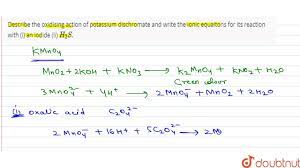 Describe the oxidising action of potassium dischromate and write the ionic equaitons for its reaction
with (i) an iodide (ii) H₂S.
KMnO₄
MnO₂ + 2KOH + KNO₃ → K₂MnO₄ + KNO₂ + H₂O
Green colour
3MnO₄²⁻ + 4H⁺ → 2MnO₄⁻ + MnO₂ + 2H₂O
(i) oxalic acid C₂O₄²⁻
2MnO₄⁻ + 16H⁺ + 5C₂O₄²⁻ → 2M
doubtnut